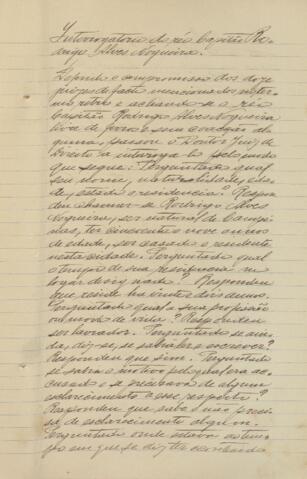 Interrogatorio do réo Capitão Ro-
drigo Alves Nogueira.
Depois do compromisso dos doze
juizes de facto mencionados no ter-
mo retro e achando-se o réo
Capitão Rodrigo Alves Nogueira
livre de ferros e sem coacção al-
guma, passou o Doutor Juiz de
Direito a interrogal-o pelo modo
que segue: Perguntado qual
seu nome, naturalidade, ida-
de, estado e residencia? Respon-
deu chamar-se Rodrigo Alves
Nogueira, ser natural de Campi-
nas, ter cincoenta e nove annos
de edade, ser casado e residente
nesta cidade. Perguntado qual
o tempo de sua residencia no
logar designado? Respondeu
que reside ha vinte e dois annos.
Perguntado qual a sua profissão
ou modo de vida? Respondeu
ser lavrador. Perguntado se ain-
da, diz-se, se sabe ler e escrever?
Respondeu que sim. Perguntado
se sabia o motivo pelo qual era ac-
cusado e se precisava de algum
esclarecimento a esse respeito?
Respondeu que sabe e não preci-
sa de esclarecimento algum.
Perguntado onde estava ao tem-
po em que se diz ter